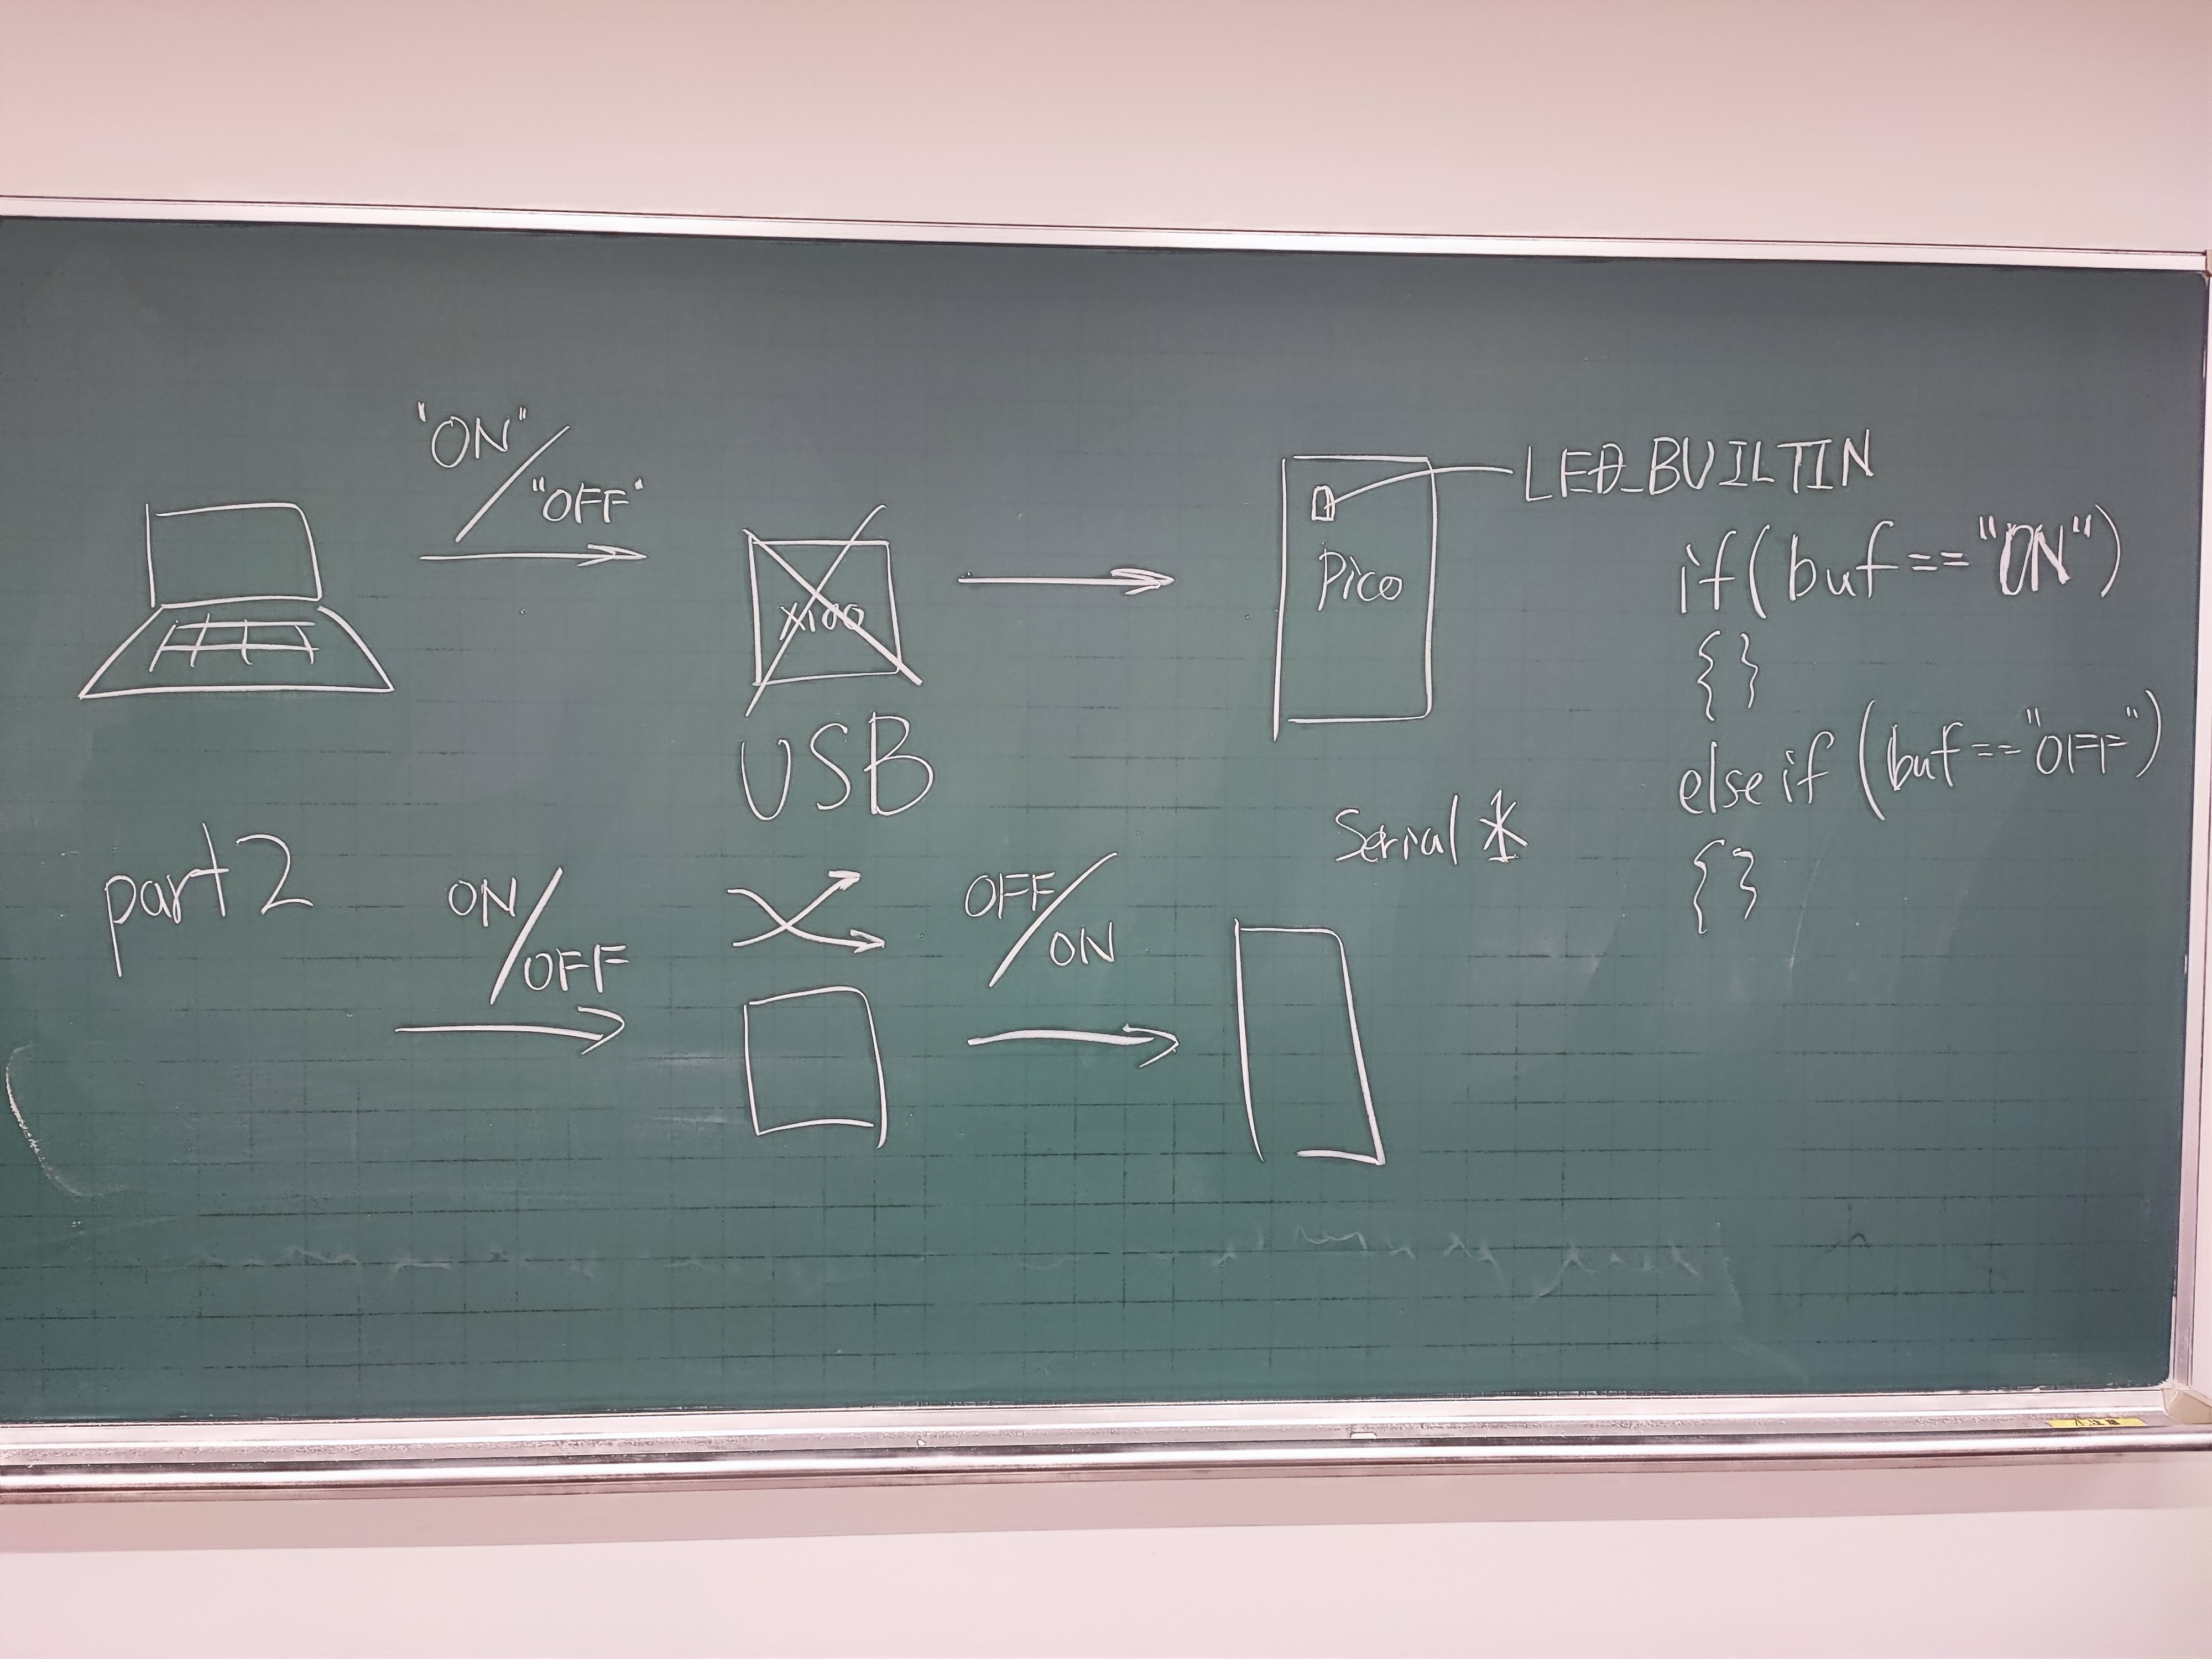 "ON"
/
"OFF"
xiao
USB
Pico
LED_BUILTIN
if (buf == "ON")
{ }
else if (buf == "OFF")
{ }
Serial *
part2
ON
/
OFF
OFF
/
ON